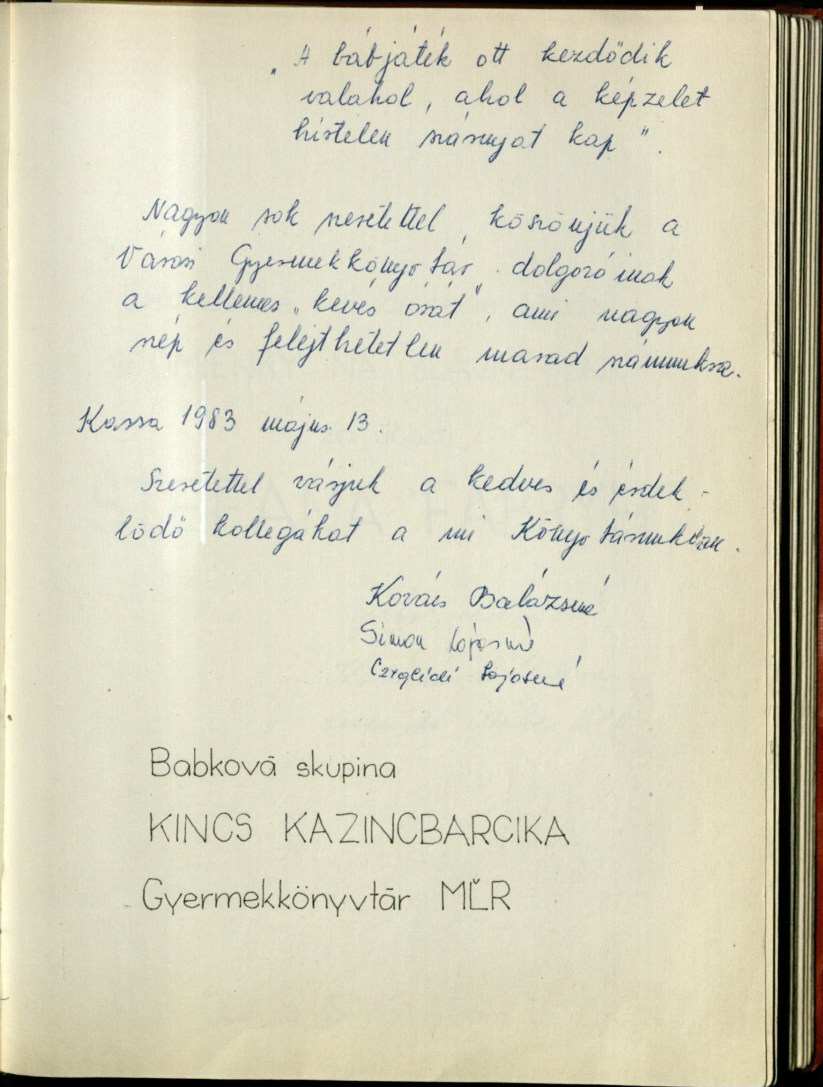 „A bábjáték ott kezdődik
valahol, ahol a képzelet
hirtelen szárnyat kap".
Nagyon sok szeretettel köszönjük a
Városi Gyermekkönyvtár dolgozóinak
a kellemes „kevés órát", ami nagyon
szép és felejthetetlen marad számunkra.
Kassa 1983 május 13.
Szeretettel várjuk a kedves és érdek-
lődő kollegákat a mi Könyvtárunkban.
Kovács Balázsné
Simon Lajosné
Czeglédi Lajosné
Babková skupina
KINCS KAZINCBARCIKA
Gyermekkönyvtár MĽR